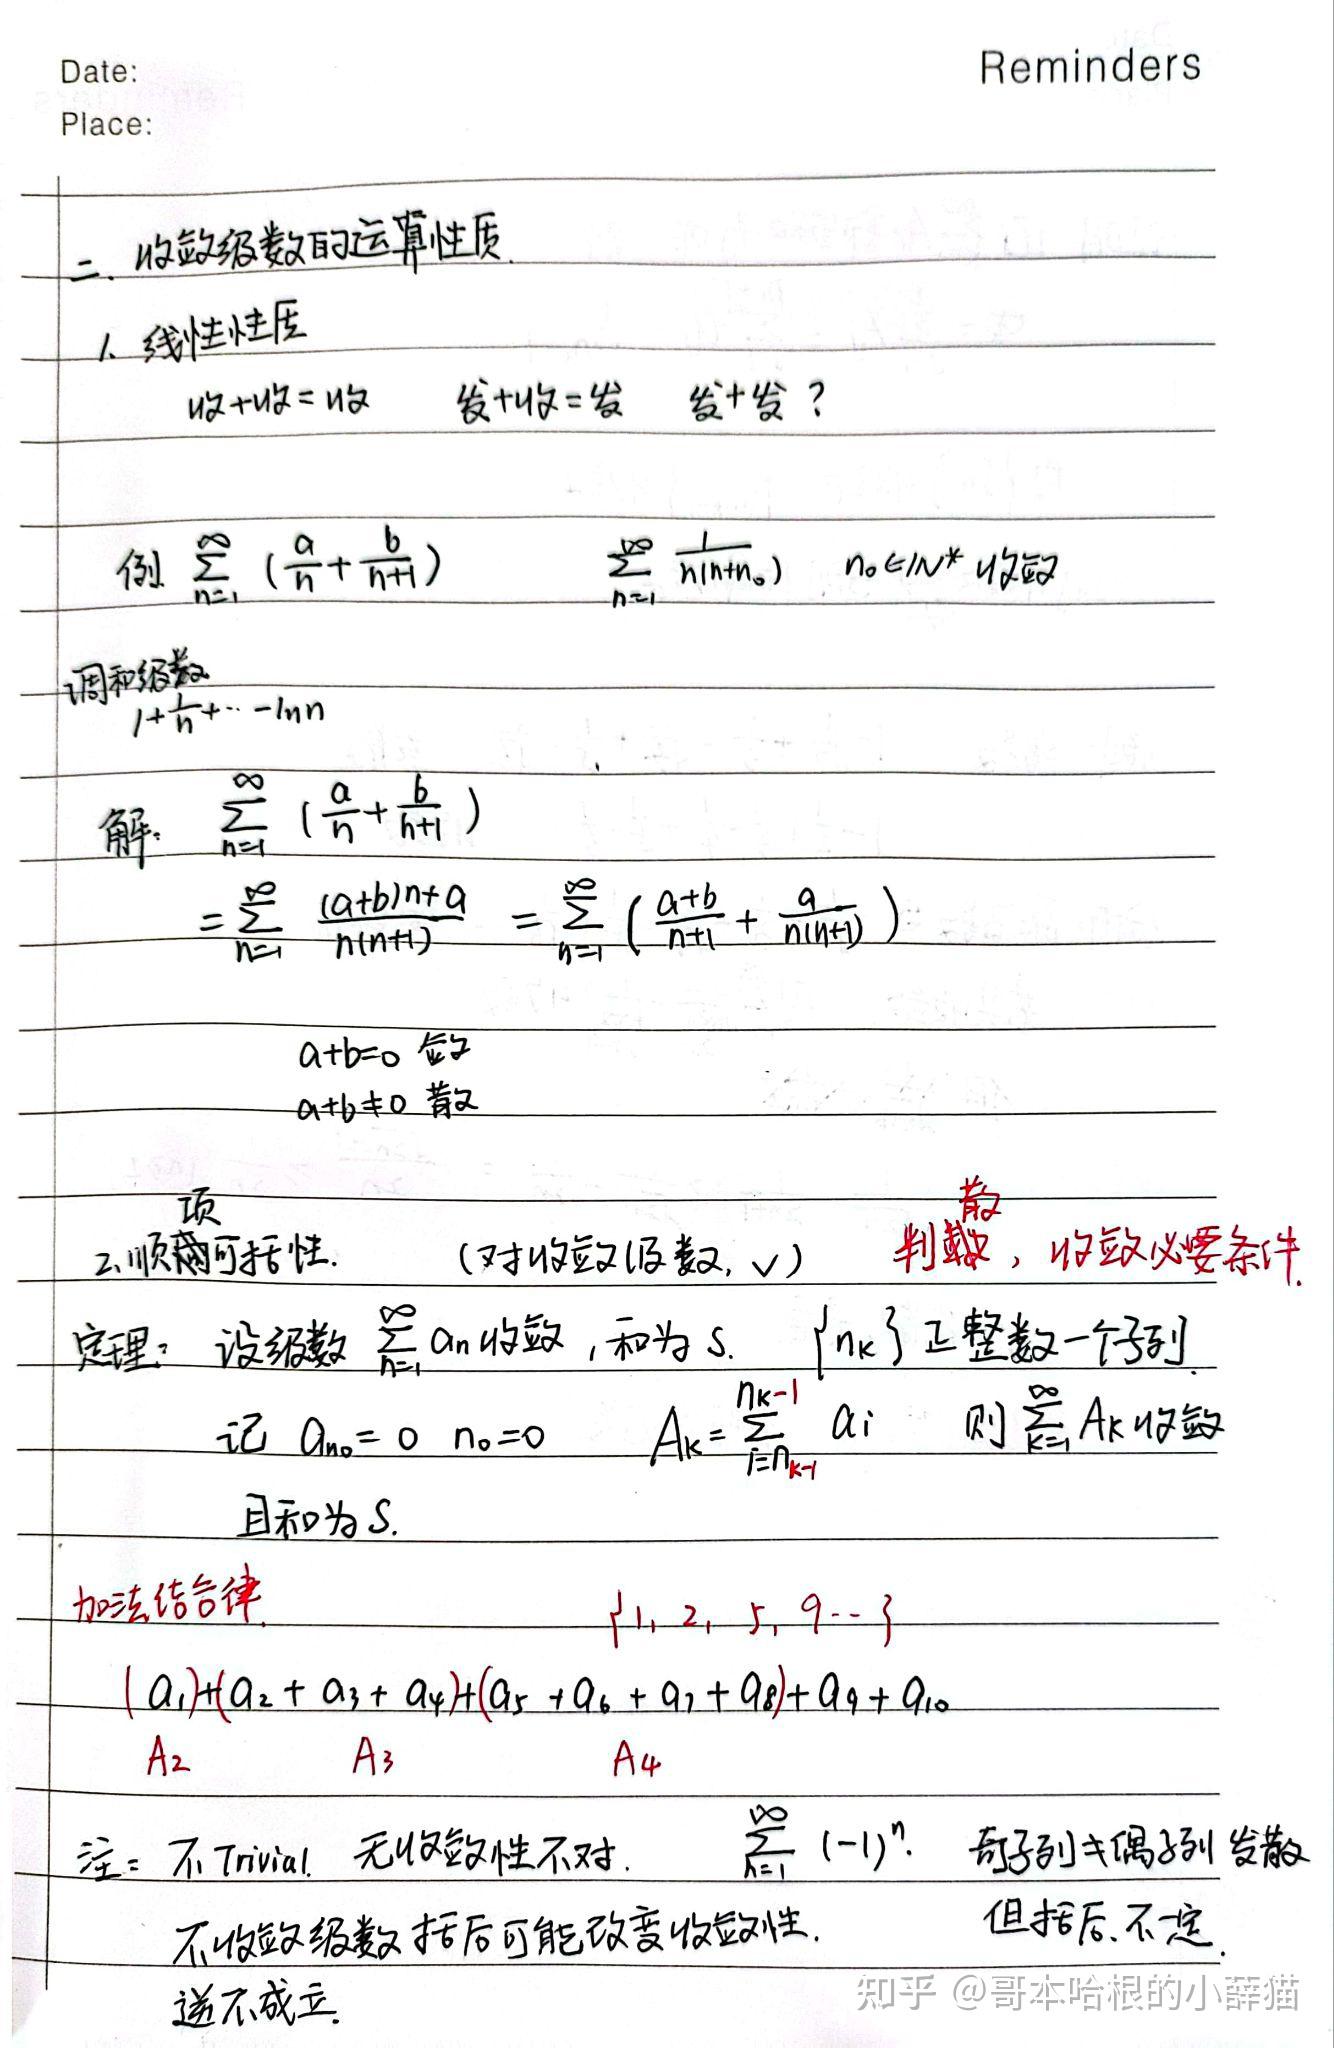 Date:
Reminders
Place:
二. 收敛级数的运算性质.
1. 线性性质
收+收=收 发+收=发 发+发?
例. ∑_{n=1}^{∞} (a/n + b/(n+1)) ∑_{n=1}^{∞} 1/(n(n+n₀)) n₀∈IN* 收敛
调和级数
1+1/n+… -lnn
解: ∑_{n=1}^{∞} (a/n + b/(n+1))
= ∑_{n=1}^{∞} ((a+b)n+a)/(n(n+1)) = ∑_{n=1}^{∞} ((a+b)/(n+1) + a/(n(n+1)))
a+b=0 敛
a+b≠0 散
项 散
2. 顺可括性. (对收敛级数, ✓) 判, 收敛必要条件.
定理: 设级数 ∑_{n=1}^{∞} an 收敛, 和为 S. {n_k} 正整数一个子列.
记 a_{n₀}=0 n₀=0 A_k = ∑_{i=n_{k-1}}^{n_k-1} ai 则 ∑_{k=1}^{∞} A_k 收敛
且和为 S.
加法结合律.
{1, 2, 5, 9…}
(a₁)+(a₂+a₃+a₄)+(a₅+a₆+a₇+a₈)+a₉+a₁₀
A₂ A₃ A₄
注: 不Trivial. 无收敛性不对. ∑_{n=1}^{∞} (-1)ⁿ. 奇子列 偶子列 发散
不收敛级数括后可能改变收敛性. 但括后不一定.
逆不成立.
知乎 @哥本哈根的小薛猫